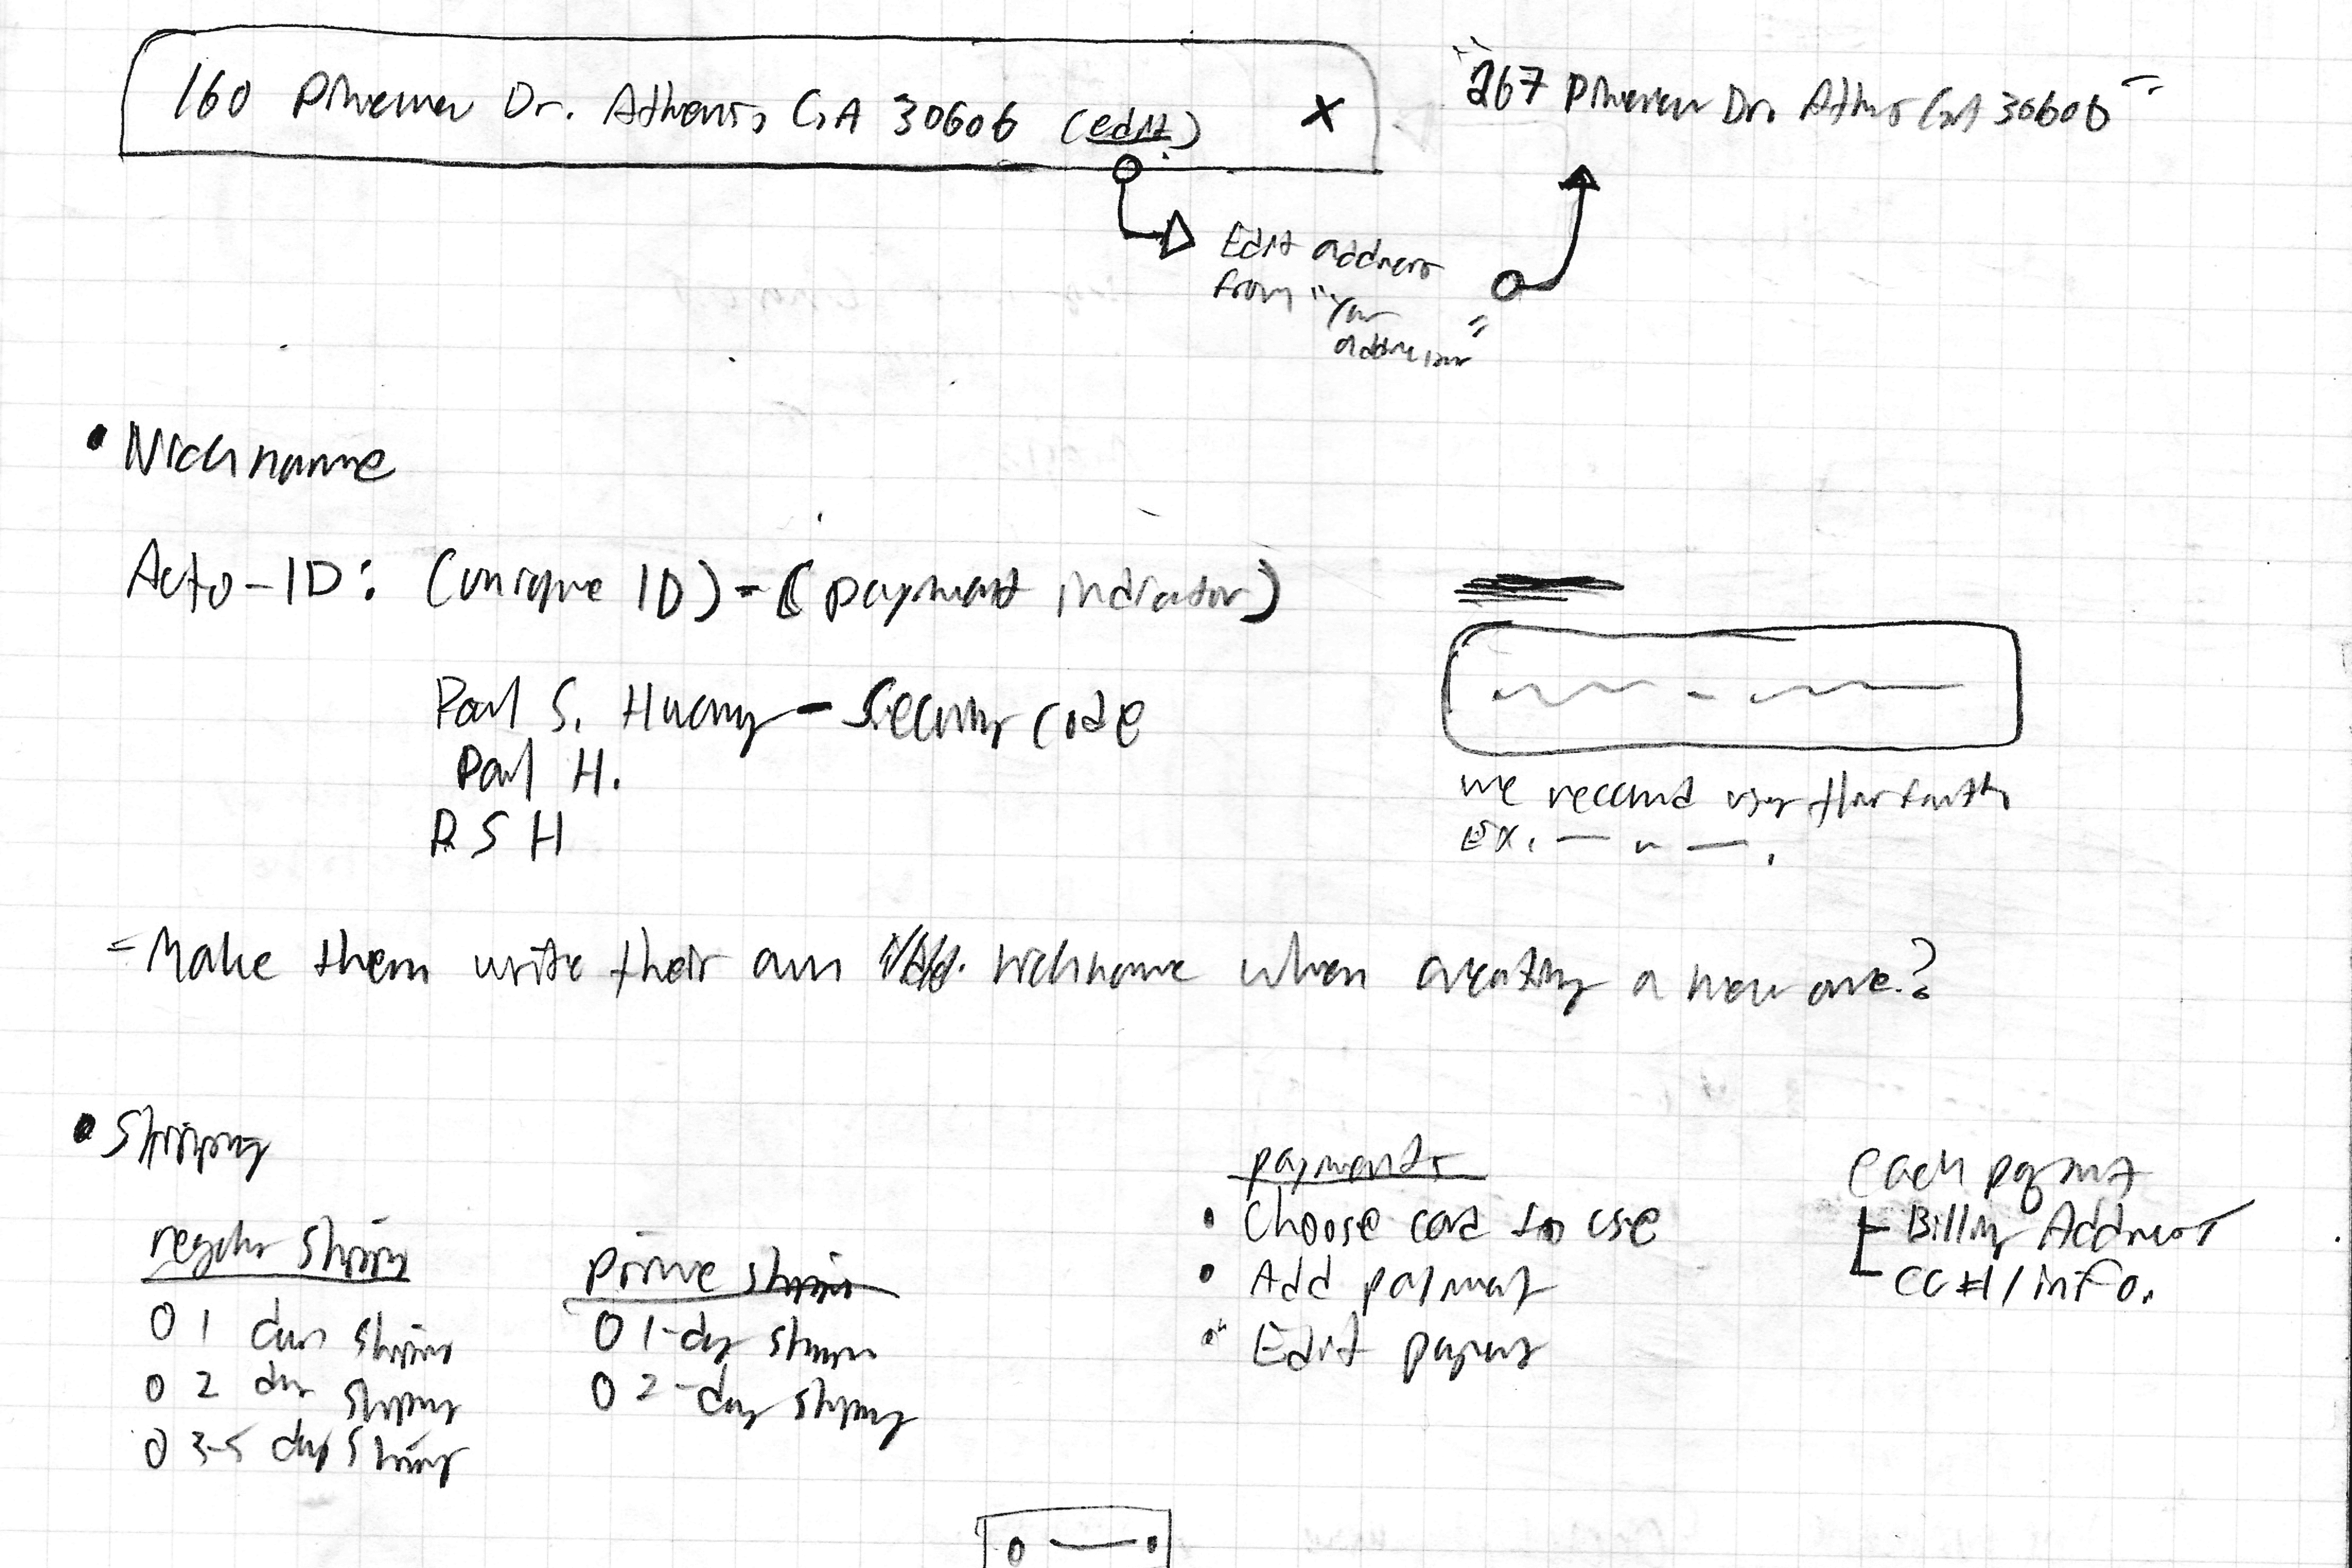 160 Dr. Athens GA 30606 (edit) X
"267 Dr. Athens GA 30606"
Edit address
from "Your
addresses"
• Nickname
Auto-ID: (unique ID) - (payment indicator)
Paul S. Huang - Security code
Paul H.
P S H
- Make them write their own nickname when creating a new one?
we recommend using this
Ex. — - —.
• Shipping
regular shipping
O 1 day shipping
O 2 day shipping
O 3-5 day shipping
prime shipping
O 1-day shipping
O 2-day shipping
payments
• Choose card to use
• Add payment
• Edit payment
each payment
Billing Address
CC#/info.